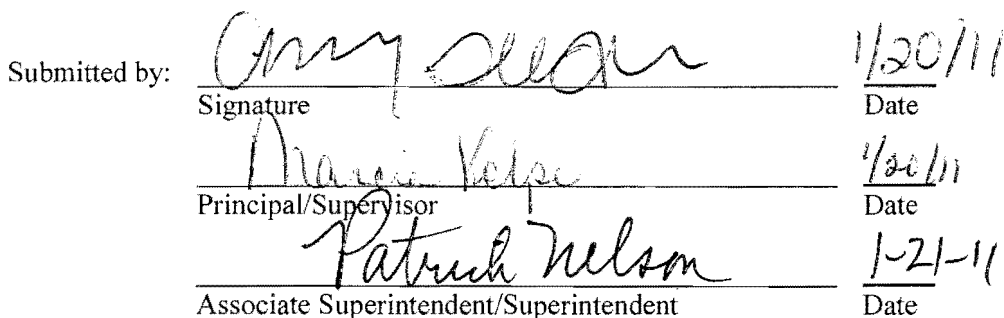 Submitted by: Amy 1/20/11
Signature Date
Marcia 1/20/11
Principal/Supervisor Date
Patrick Nelson 1-21-11
Associate Superintendent/Superintendent Date